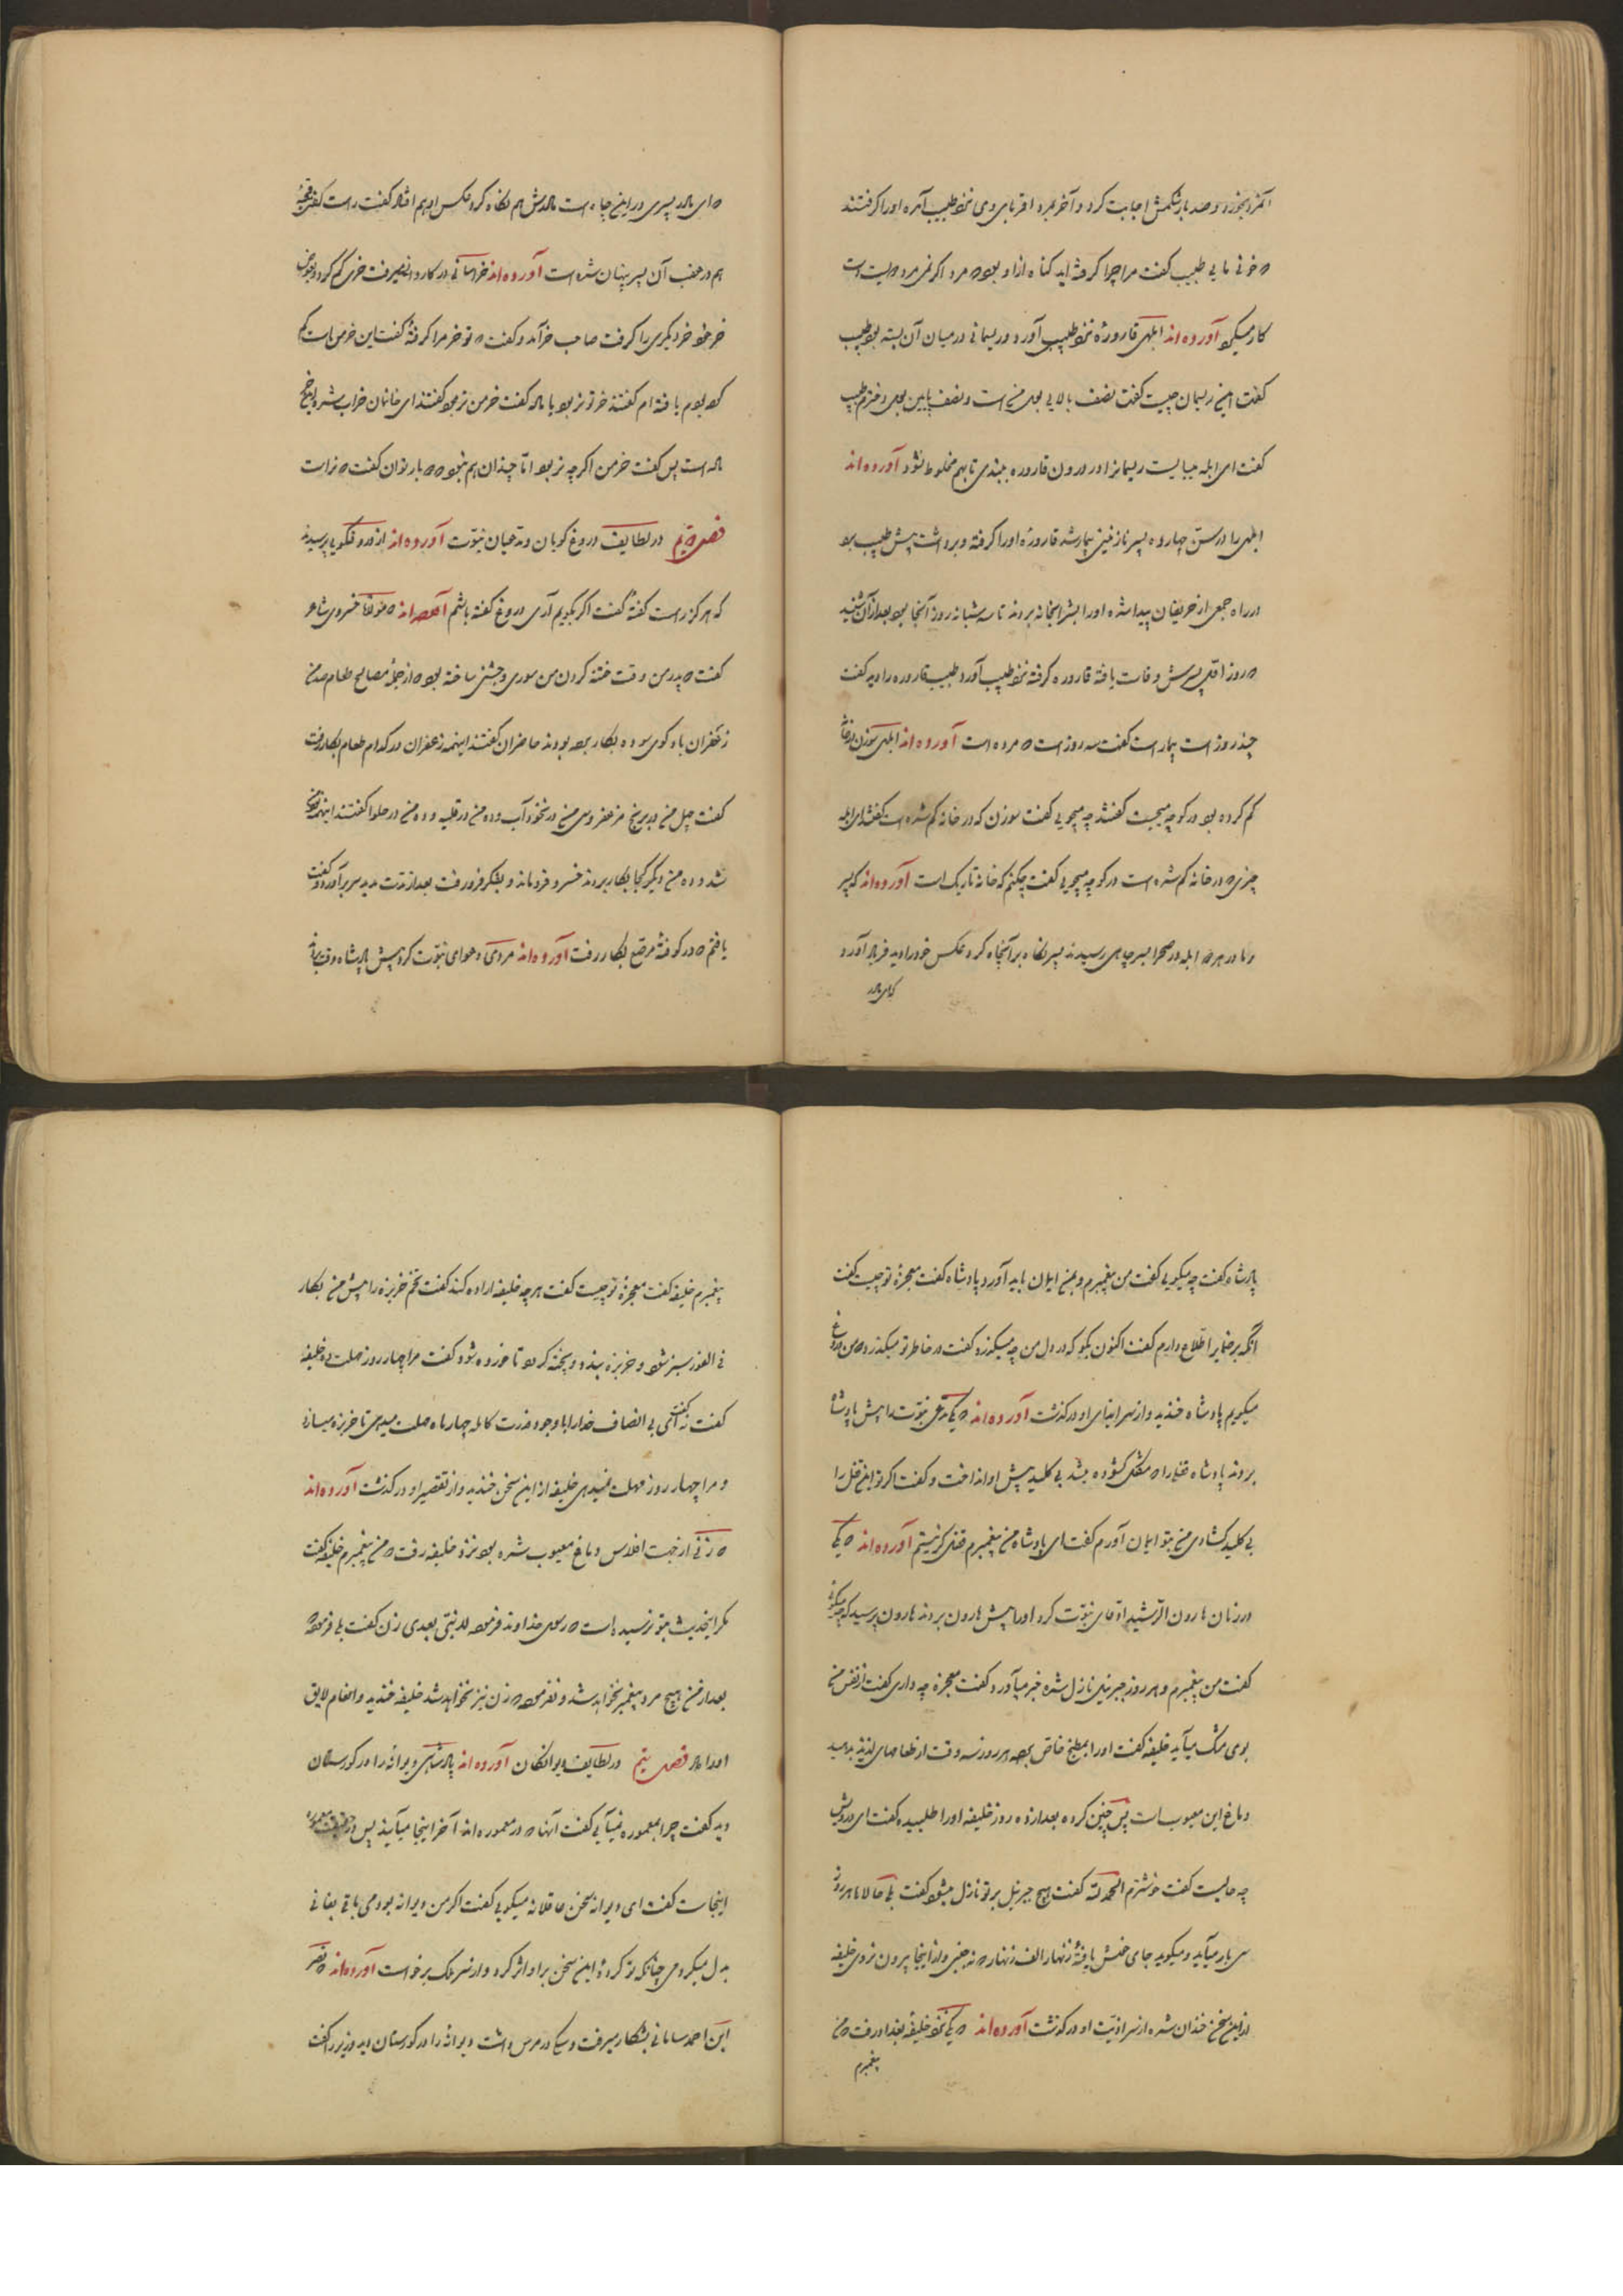 آنمرد بخورد و صد بار شکمش اجابت کرد و آخر بمرد اقربای وی نزد طبیب آمده او را گرفتند
که خونی مایی طبیب گفت مرا چرا گرفته‌اید گناه از او بود که مرد اگر نمی‌مرد
کار میکرد آورده‌اند ابلهی قاروره نزد طبیب آورد و ریسمانی در میان آن بسته بود طبیب
گفت این ریسمان چیست گفت نصف بالایی بول من است و نصف پایین بول دخترم طبیب
گفت ای ابله میبایست ریسمانرا در درون قاروره ببندی تا بهم مخلوط نشود آورده‌اند
ابلهی را در سن چهارده پسر نازنینی بیمار شد قاروره او را گرفته و برداشت پیش طبیب برد
در راه جمعی از حریفان پیدا شده او را بشرابخانه بردند تا سه شبانه روز آنجا بود بعد از آن شنید
که روز اول پسرش وفات یافته قاروره گرفته نزد طبیب آورد طبیب قاروره را دید گفت
چند روز است بیمار است گفت سه روز است که مرده است آورده‌اند ابلهی سوزن در خانه
گم کرده بود در کوچه میجست گفتند چه میجویی گفت سوزن که در خانه گم شده است گفتند ای ابله
چیزی که در خانه گم شده است در کوچه میجویی گفت چکنم که خانه تاریک است آورده‌اند که پسر
و مادر هر دو ابله در صحرا بسر چاهی رسیدند پسر نگاه بر آنچاه کرد عکس خود را دید فریاد آورد
که ای مادر
که ای مادر پسری در این چاه است مادرش هم نگاه کرد عکس او هم افتاد گفت راست گفتی قحبهٔ
هم در عقب آن پسر پنهان شده است آورده‌اند خراسانی در کاروانی میرفت خری گم کرد و بعوض
خر خود خر دیگری را گرفت صاحب خر آمد و گفت که تو خر مرا گرفتهٔ گفت این خر من است گم
کرده بودم یافته‌ام گفتند خر تو نر بود یا ماده گفت خر من نر بود گفتند ای خانمان خراب شده این خر
ماده است پس گفت خر من اگر چه نر بود اما چندان هم نبود که باو توان گفت که نر است
فصل در لطایف دروغ گویان و مدعیان نبوت آورده‌اند از دروغگویی پرسیدند
که هرگز راست گفتهٔ گفت اگر بگویم آری دروغ گفته باشم آورده‌اند که مولانا خسروی شاعر
گفت که پدر من وقت ختنه کردن من سوری و جشنی ساخته بود که از جمله مصالح طعام صد من
زعفران باو کوی سوده بکار برده بودند حاضران گفتند اینهمه زعفران در کدام طعام بکار رفت
گفت چهل من در برنج مزعفر و سی من در نخودآب و ده من در قلیه و ده من در حلوا گفتند اینهمه نود من
شد و ده من دیگر کجا بکار بردند خسرو فروماند و بفکر فرو رفت بعد از مدت مدید سر برآورد و گفت
یافتم که در کوفتهٔ مرصع بکار رفت آورده‌اند مردی دعوای نبوت کرد پیش پادشاه وقت بردند
پادشاه گفت چه میگویی گفت من پیغمبرم و بمن ایمان باید آورد پادشاه گفت معجزهٔ تو چیست گفت
آنکه بر ضمایر اطلاع دارم گفت اکنون بگو که در دل من چه میگذرد گفت در خاطر تو میگذرد که من دروغ
میگویم پادشاه خندید و از سر ایذای او درگذشت آورده‌اند که یکی مدعی نبوت را پیش پادشاه
بردند پادشاه قفلی را که مشکل گشوده میشد بی کلید پیش او انداخت و گفت اگر تو این قفل را
بی کلید گشادی من بتو ایمان آورم گفت ای پادشاه من پیغمبرم قفل گر نیستم آورده‌اند که یکی
در زمان هارون الرشید ادعای نبوت کرد او را پیش هارون بردند هارون پرسید که چه میگوئی
گفت من پیغمبرم و هر روز جبرئیل نازل شده خبر میآورد گفت معجزه چه داری گفت از نفس من
بوی مشک میآید خلیفه گفت او را بمطبخ خاص برده هر روز سه وقت از طعامهای لذیذ بدهید
دماغ این معیوب است پس چنین کرده بعد از ده روز خلیفه او را طلبیده گفت ای درویش
چه حالست گفت خوشترم الحمد لله گفت هیچ جبرئیل بر تو نازل میشود گفت بلی حالا ما هر روز
سی بار میآید و میگوید جای خوش یافتهٔ زنهار الف زنهار که نه جنبی و از اینجا بیرون نروی خلیفه
از این سخن خندان شده از سر اذیت او درگذشت آورده‌اند که یکی نزد خلیفه بغداد رفت که من
پیغمبرم
پیغمبرم خلیفه گفت معجزهٔ تو چیست گفت هر چه خلیفه اراده کند گفت تخم خربزه را پیش من بکار
فی الفور سبز شود و خربزه ببندد و پخته گردد تا خورده شود گفت مرا چهار روز مهلت ده خلیفه
گفت نه گفت ای بی انصاف خدا را با وجود قدرت کامله چهار ماه مهلت میدهی تا خربزه میسازد
و مرا چهار روز مهلت نمیدهی خلیفه از این سخن خندید و از تقصیر او درگذشت آورده‌اند
که زنی از جهت افلاس دماغ معیوب شده بود نزد خلیفه رفت که من پیغمبرم خلیفه گفت
مگر این حدیث بتو نرسیده است که رسول خداوند فرموده لا نبی بعدی زن گفت بلی فرموده
بعد از من هیچ مرد پیغمبر نخواهد شد و نفرموده که زن نیز نخواهد شد خلیفه خندید و انعام لایق
او را داد فصل پنجم در لطایف دیوانگان آورده‌اند پادشاهی دیوانهٔ را در گورستان
دید گفت چرا بمعموره نمیآیی گفت آنها که در معموره‌اند آخر اینجا میآیند پس در حقیقت معموره
اینجاست گفت ای دیوانه سخن عاقلانه میگویی گفت اگر من دیوانه بودمی باقی بفانی
بدل میکردمی چنانکه تو کردهٔ این سخن بر او اثر کرد و از سر ملک برخواست آورده‌اند که نصر
ابن احمد سامانی بشکار میرفت و سگی در مرس داشت دیوانهٔ را در گورستان دید وزیر را گفت